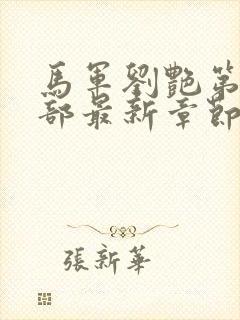 馬軍劉艷第
部最新章節
張新華